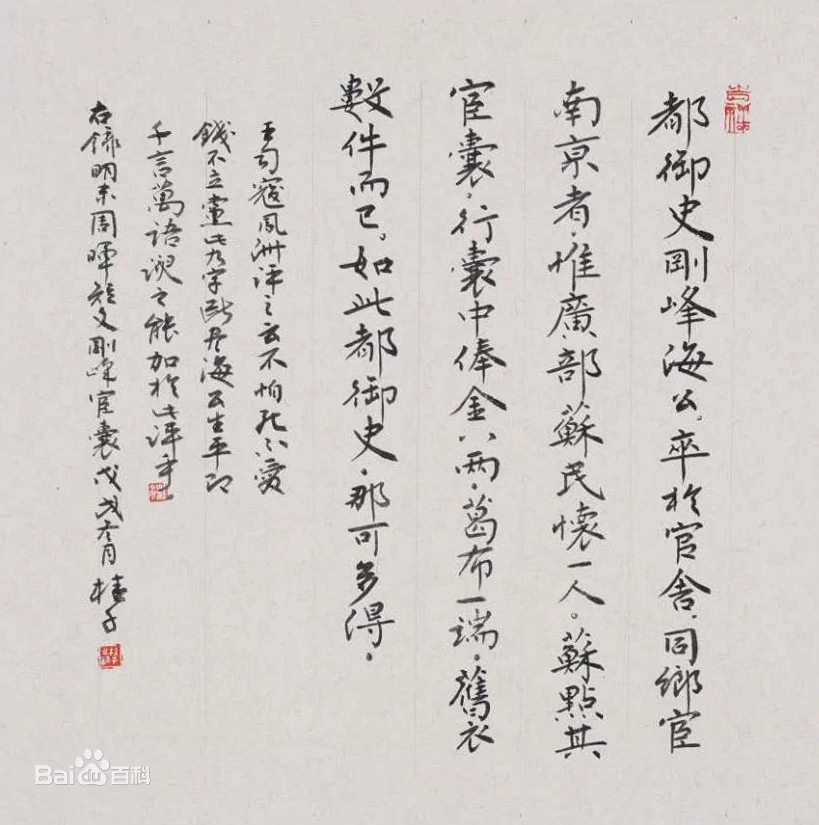 都御史剛峰海公。卒於官舍、同鄉宦
南京者、惟廣部蘇民懷一人。蘇點其
宦囊、行囊中俸金八两、葛布一端、舊衣
數件而已。如此都御史、那可多得。
王司寇鳳洲評之云不怕死不愛
錢不立黨此九字斷尽海公生平即
千言萬語諛之能加於此評乎
右錄明末周暉短文剛峰宦囊戊戌六月桂子
Baidu百科